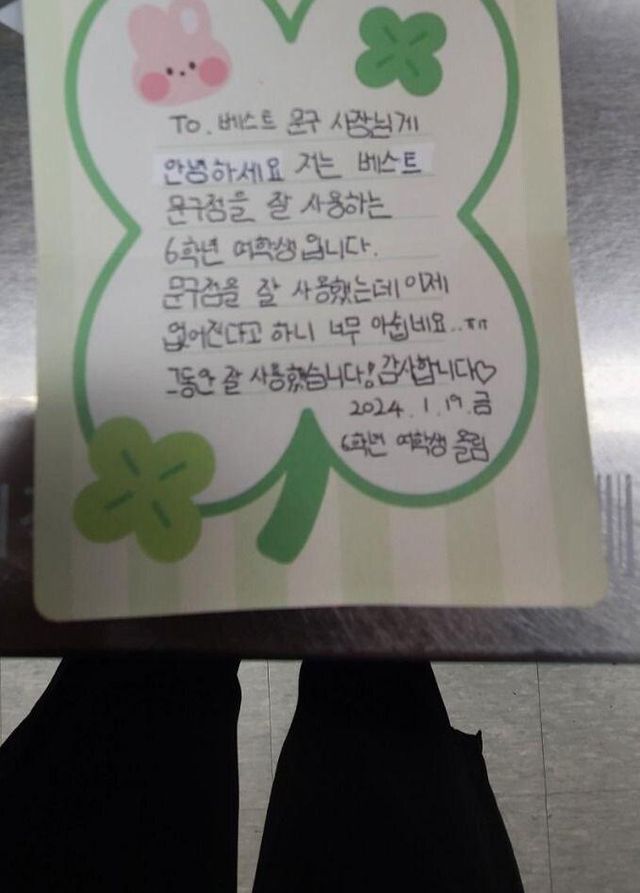 To. 베스트 문구 사장님께
안녕하세요 저는 베스트
문구점을 잘 사용하는
6학년 여학생 입니다.
문구점을 잘 사용했는데 이제
없어진다고 하니 너무 아쉽네요..ㅠㅠ
그동안 잘 사용했습니다! 감사합니다♡
2024.1.19.금
6학년 여학생 올림